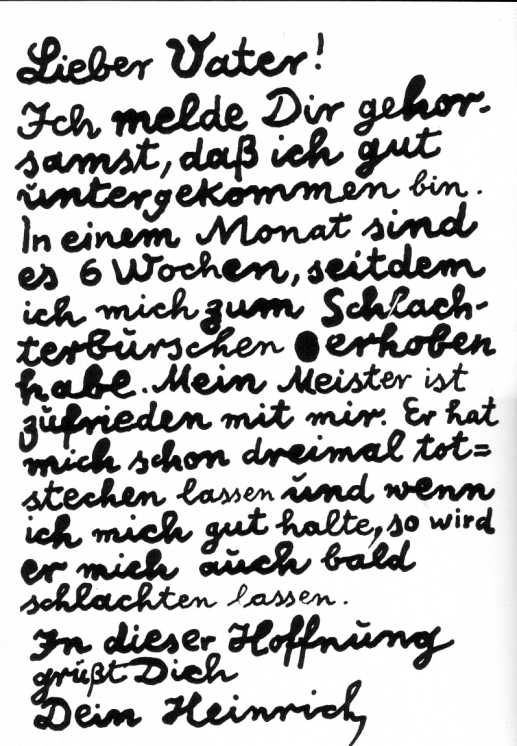 Lieber Vater!
Ich melde Dir gehor-
samst, daß ich gut
untergekommen bin.
In einem Monat sind
es 6 Wochen, seitdem
ich mich zum Schlach-
terburschen erhoben
habe. Mein Meister ist
zufrieden mit mir. Er hat
mich schon dreimal tot=
stechen lassen und wenn
ich mich gut halte, so wird
er mich auch bald
schlachten lassen.
In dieser Hoffnung
grüßt Dich
Dein Heinrich,